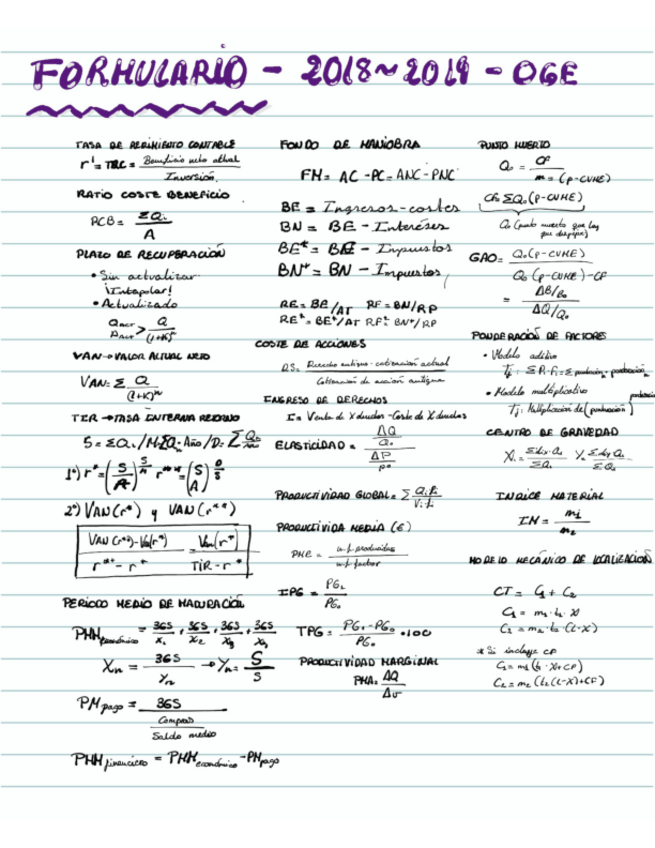 FORMULARIO - 2018~2019 - OGE
TASA DE RERIMIENTO CONTABLE
r' = TRC = Beneficio neto actual / Inversión
RATIO COSTE BENEFICIO
RCB = ΣQi / A
PLAZO DE RECUPERACIÓN
• Sin actualizar
¡Intapolar!
• Actualizado
VAN → VALOR ACTUAL NETO
VAN = Σ Q / (1+K)^n
TIR → TASA INTERNA RETORNO
1º) r* = (S/A)^(S/M) r** = (S/A)^(D/S)
2º) VAN(r*) y VAN(r**)
PERIODO MEDIO DE MADURACIÓN
PMM económico = 365/X₁ + 365/X₂ + 365/X₃ + 365/X₄
PM pago = 365 / (Compras / Saldo medio)
PMM financiero = PMM económico - PM pago
FONDO DE MANIOBRA
FM = AC - PC = ANC - PNC
BE = Ingresos - costes
BN = BE - Intereses
BE* = BE - Impuestos
BN* = BN - Impuestos
RE = BE/AT RF = BN/RP
RE* = BE*/AT RF* = BN*/RP
COSTE DE ACCIONES
DS = Derecho antiguo - cotización actual / Cotización de acción antigua
INGRESO DE DERECHOS
I = Venta de X duchos - Coste de X duchos
ELASTICIDAD = (ΔQ/Q₀) / (ΔP/P⁰)
PRODUCTIVIDAD GLOBAL =
PRODUCTIVIDA MEDIA (€)
PME = u.f. producidas / u.f. factor
IPG = PG₁ / PG₀
TPG = (PG₁ - PG₀) / PG₀ · 100
PRODUCTIVIDAD MARGINAL
PMA = ΔQ / Δv
PUNTO MUERTO
Q₀ = CF / m = (P-CVME)
CF = ΣQ₀(P-CVME)
Q₀ (punto muerto que hay que despejar)
GAO = Q₀(P-CVME) / Q₀(P-CVME)-CF
= (ΔB/B₀) / (ΔQ/Q₀)
PONDERACIÓN DE FACTORES
• Modelo aditivo
• Modelo multiplicativo
CENTRO DE GRAVEDAD
INDICE MATERIAL
IM = m₁ / m₂
MODELO MECÁNICO DE LOCALIZACIÓN
CT = C₁ + C₂
C₁ = m₁ · t₁ · X
C₂ = m₂ · t₂ · (L-X)
* Si incluye CF
C₁ = m₁ (t₁ · X + CF)
C₂ = m₂ (t₂(L-X) + CF)